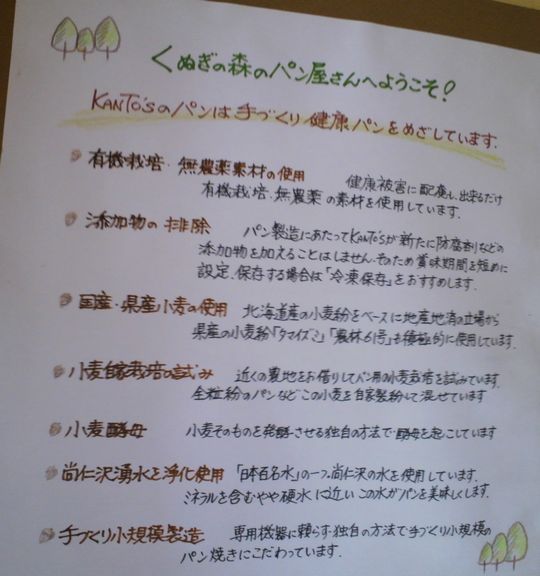 くぬぎの森のパン屋さんへようこそ!
KANTO'sのパンは手づくり健康パンをめざしています.
有機栽培・無農薬素材の使用 健康被害に配慮し、出来るだけ
有機栽培・無農薬の素材を使用しています.
添加物の排除 パン製造にあたってKANTO'sが新たに防腐剤などの
添加物を加えることはしません.そのため賞味期間を短めに
設定、保存する場合は「冷凍保存」をおすすめします.
国産・県産小麦の使用 北海道産の小麦粉をベースに地産地消の立場から
県産の小麦粉「タマイズミ」「農林61号」も積極的に使用しています.
小麦自家栽培の試み 近くの農地をお借りしてパン用の小麦栽培を試みています.
全粒粉のパンなどこの小麦を自家製粉して混ぜています
小麦酵母 小麦そのものを発酵させる独自の方法で酵母を起こしています
尚仁沢湧水を浄化使用 「日本百名水」の一つ、尚仁沢の水を使用しています.
ミネラルを含むやや硬水に近いこの水がパンを美味しくします.
手づくり小規模製造 専用機器に頼らず独自の方法で手づくり小規模の
パン焼きにこだわっています.